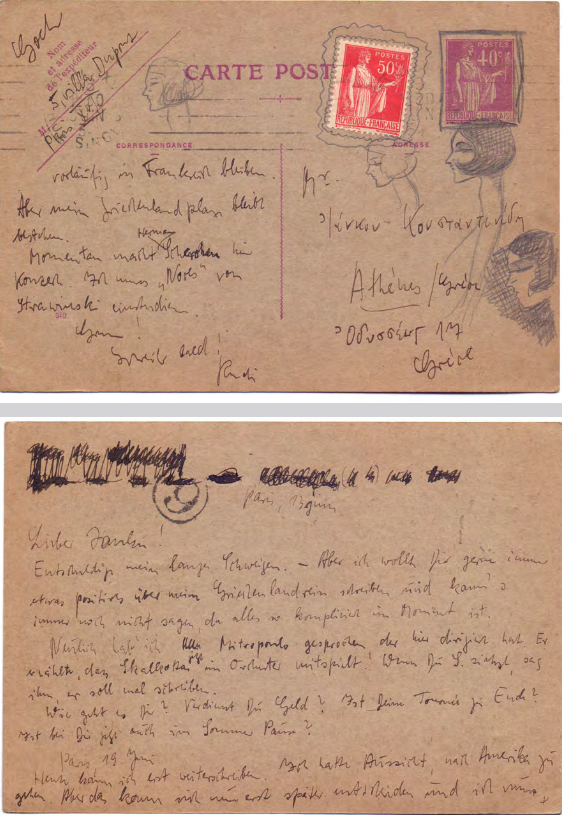 Nom
et adresse
de l'expéditeur
5 villa Dupont
Paris
CARTE POST
POSTES
50
REPUBLIQUE FRANÇAISE
POSTES
40
CORRESPONDANCE
ADRESSE
vorläufig in Frankreich bleiben.
Aber mein Griechenlandplan bleibt
bestehen.
Momentan macht Herman Scherchen hier
Konzert. Ich muss „Noces" von
Strawinski einstudieren.
Schreib bald!
Rudi
Γιάνκου Κωνσταντινίδη
Athènes / Grèce
Ὀδυσσέως 17
Grèce
9
Paris, Juni
Lieber Janku!
Entschuldige mein langes Schweigen. – Aber ich wollte Dir gerne immer
etwas positives über meine Griechenlandreise schreiben und kann's
immer noch nicht sagen da alles so kompliziert im Moment ist.
Neulich hab' ich Mitropoulo gesprochen der hier dirigiert hat. Er
erzählte, dass Skalkottas im Orchester mitspielt! Wenn Du S. siehst, sag
ihm, er soll mal schreiben.
Wie geht es Dir? Verdienst Du Geld? Ist Deine Tournée zu Ende?
Ist bei Dir jetzt auch im Sommer Pause?
Paris 19. Juni
Heute kann ich erst weiterschreiben. Ich hatte Aussicht, nach Amerika zu
gehen. Aber das kann sich nun erst später entscheiden und ich muss